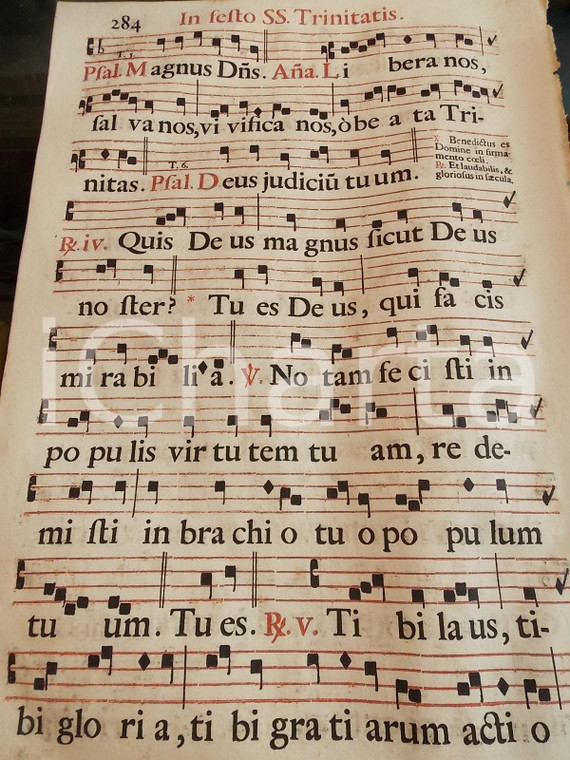 284 In festo SS. Trinitatis.
T. 1.
Psal. Magnus Dñs. Aña. Li bera nos,
sal va nos, vi vifica nos, ò be a ta Tri-
℣. Benedictus es
Domine in firma-
mento cœli.
℟. Et laudabilis, &
gloriosus in sæcula.
T. 6.
nitas. Psal. Deus judiciū tu um.
℟. iv. Quis De us ma gnus sicut De us
no ster? * Tu es De us, qui fa cis
mi ra bi li a. ℣. No tam fe ci sti in
iCharta
po pu lis vir tu tem tu am, re de-
mi sti in bra chi o tu o po pu lum
tu um. Tu es. ℟. v. Ti bi la us, ti-
bi glo ri a, ti bi gra ti arum acti o